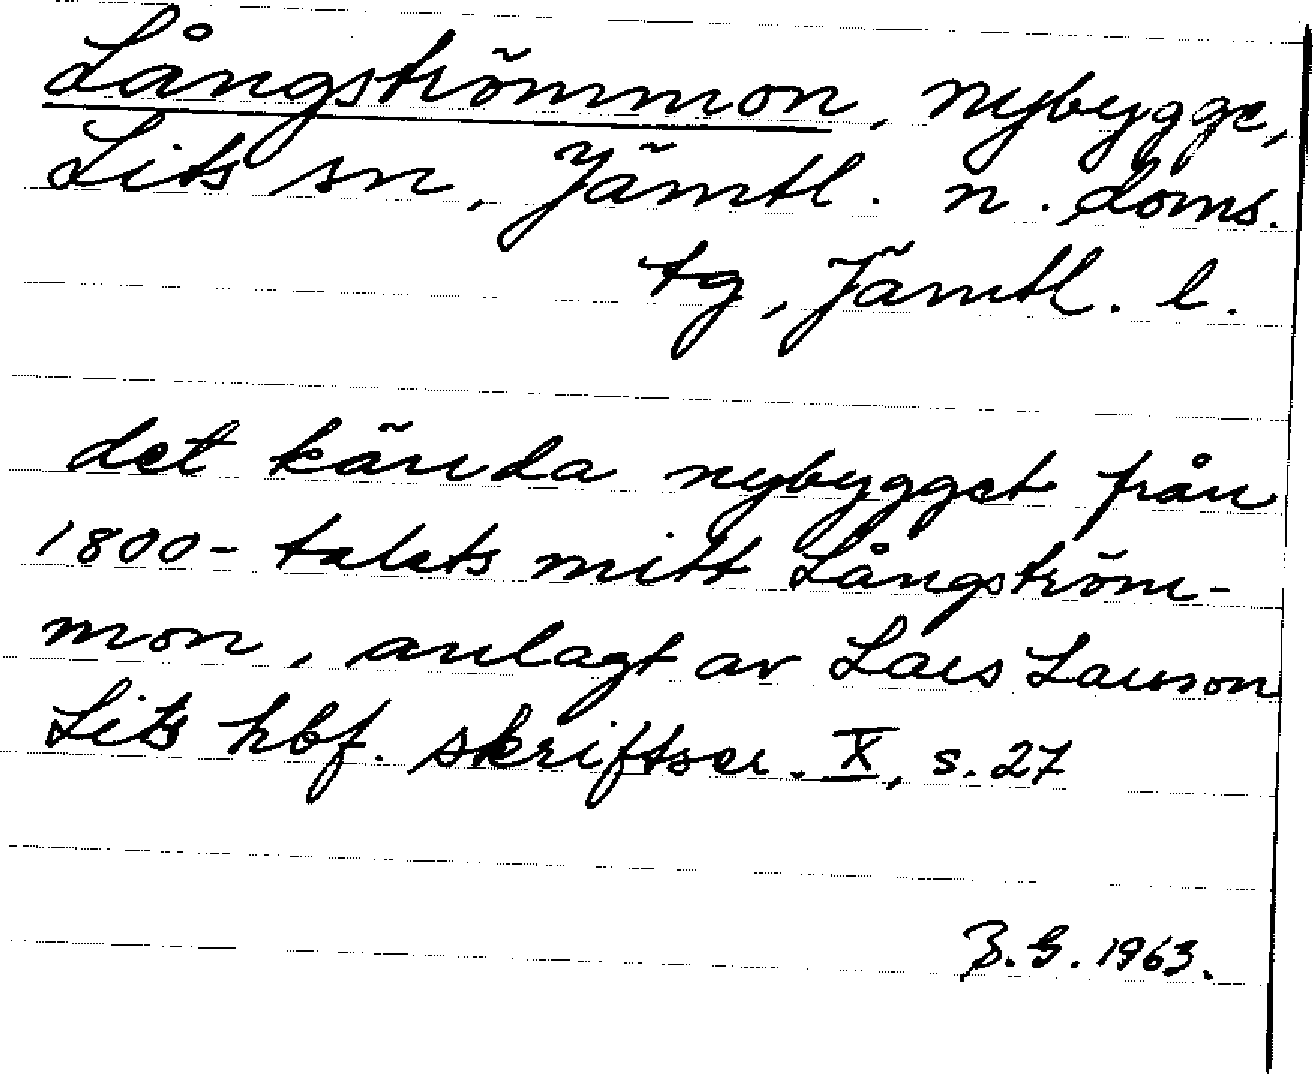 Långströmmon, nybygge,
Lits sn, Jämtl. n. doms.
tg, Jämtl. l.
det kända nybygget från
1800-talets mitt Långström-
mon, anlagt av Lars Larsson
Lits hbf. skriftser. X, s. 27
B.G. 1963.